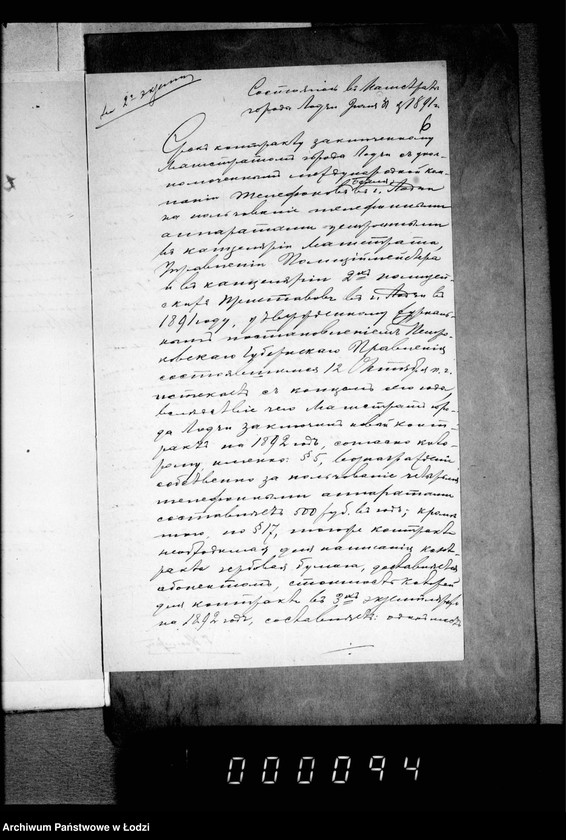 Состоялось въ Магистратѣ
города Лодзи 1891 г.
6
Срокъ контракту заключенному
Магистратомъ города Лодзи съ упол-
номоченнымъ международной ком-
паніи Телефоновъ Белля въ г. Лодзи
на пользованіе телефонными
аппаратами устроенными
въ канцеляріи Магистрата,
Управленіи Полиціймейстера
и въ канцеляріи 2хъ полицей-
скихъ Приставовъ въ г. Лодзи въ
1891 году, утвержденному журналь-
нымъ постановленіемъ Петро-
ковскаго Губернскаго Правленія
состоявшимся 12 Октября п. г.
истекаетъ съ концомъ сего года,
вслѣдствіе чего Магистратъ горо-
да Лодзи заключилъ новый конт-
рактъ на 1892 годъ, согласно кото-
рому, именно: §5, вознагражденіе
собственно за пользованіе четырьмя
телефонными аппаратами
составляетъ 500 руб. въ годъ; кромѣ
того, по §17, того же контракта
необходимая для написанія конт-
ракта гербовая бумага, доставляется
абонентомъ, стоимость которой
для контракта въ 3хъ экземплярахъ
на 1892 годъ, составляетъ: одной
000094
Archiwum Państwowe w Łodzi